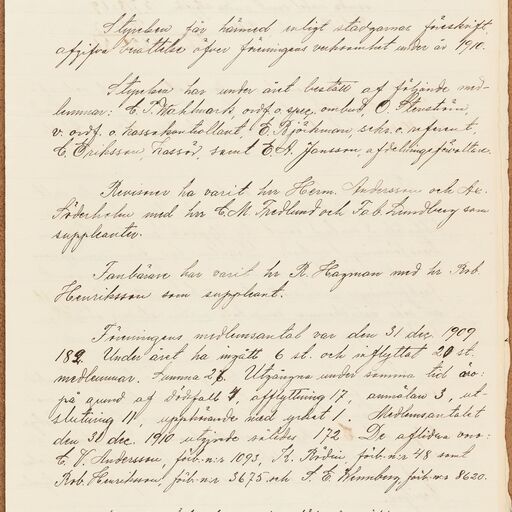 Styrelsen får härmed enligt stadgarnas föreskrift
afgifva berättelse öfver föreningens verksamhet under år 1910.
Styrelsen har under året bestått af följande med-
lemmar: C. P. Wahlmark, ordf. o. spec. ombud, O. Stenström,
v. ordf. o. kassakontrollant, E. Björkman, sekr. o. referent,
C. Eriksson kassör, samt E. A. Jansson, afdelningsförvaltare.
Revisorer ha varit hr Herm. Andersson och Ax.
Söderholm med hrr C. M. Fredlund och Fab. Lundberg som
suppleanter.
Fanbärare har varit hr R. Hagman med hr Rob.
Henriksson som suppleant.
Föreningens medlemsantal var den 31 dec. 1909
182. Under året ha ingått 6 st. och inflyttat 20 st.
medlemmar. Summa 26. Utgångna under samma tid äro:
på grund af dödsfall 4, afflyttning 17, anmälan 3, ut-
slutning 11, upphörande med yrket 1. Medlemsantalet
den 31 dec. 1910 utgjorde således 172. De aflidna äro:
C. V. Andersson, förb. n:r 1093, K. Rödin förb. n:r 48 samt
Rob. Henriksson, förb. n:r 3675 och F. E. Wennberg, förb. n:r 8620.